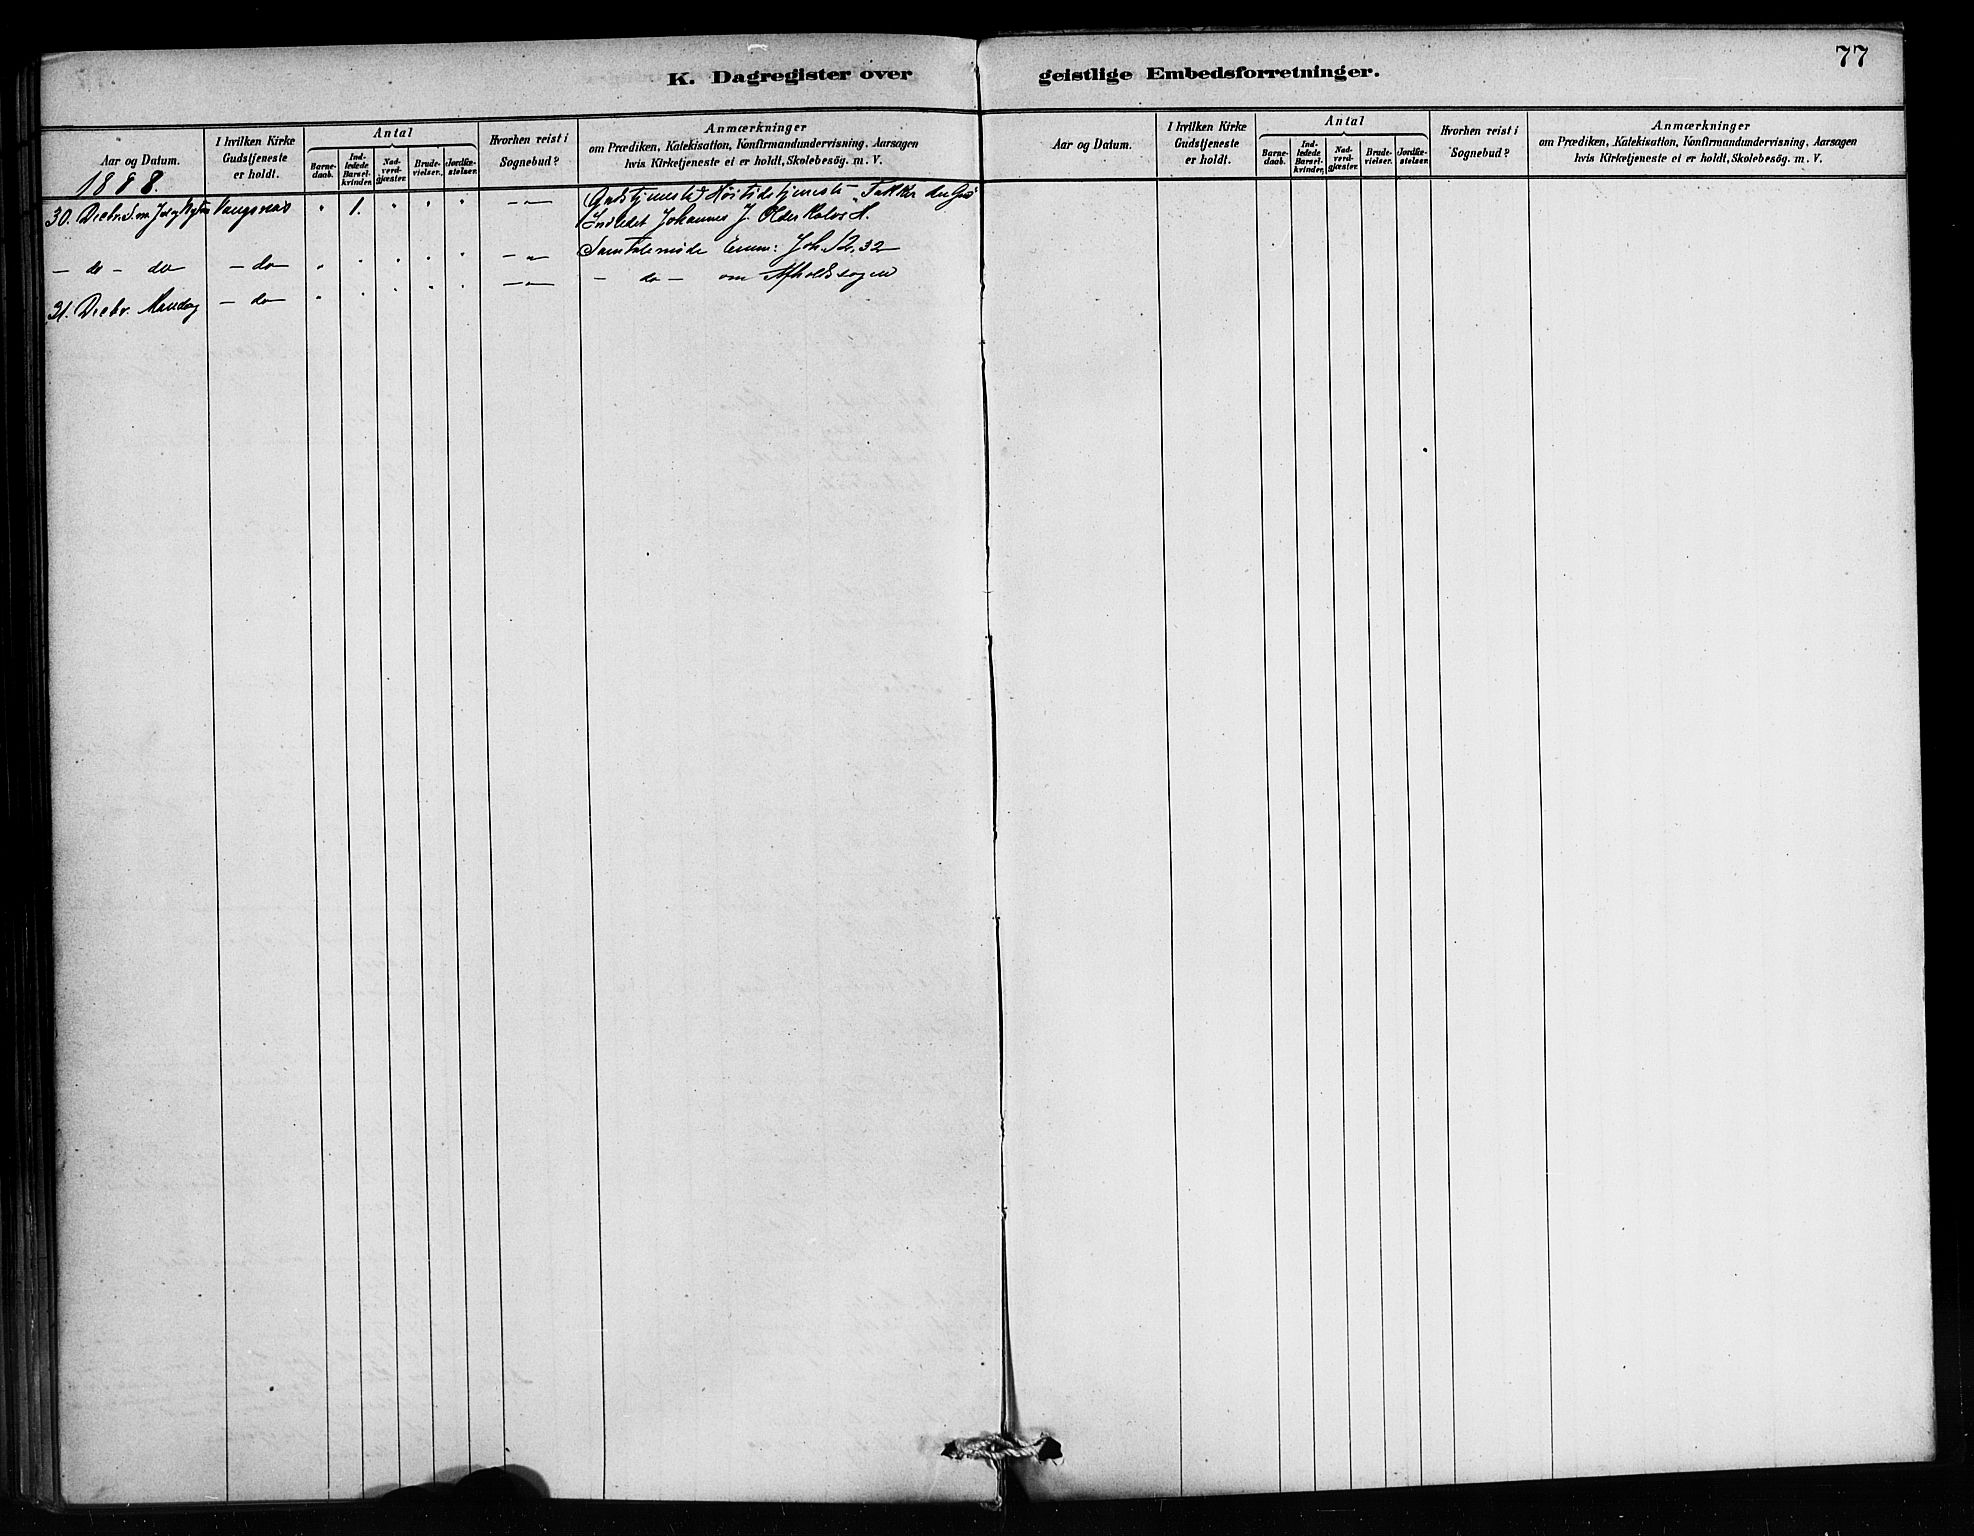 77
K. Dagregister over geistlige Embedsforretninger.
Aar og Datum.
I hvilken Kirke
Gudstjeneste
er holdt.
Antal
Barne-
daab.
Ind-
ledede
Barsel-
kvinder.
Nad-
verd-
gjæster.
Brude-
vielser.
Jordfæ-
stelser.
Hvorhen reist i
Sognebud?
Anmærkninger
om Prædiken, Katekisation, Konfirmandundervisning, Aarsagen
hvis Kirketjeneste ei er holdt, Skolebesög. m. V.
1888.
30. Decbr. S. m. Jul og Nytaar Vangsnæs " 1. " " " — " — Gudstjeneste Høitidstjeneste - Takker den Gud
Indledet Johannes J.
— do — do — do — " " " " " — " — Samtalemøde Emne: Joh. 12,32
31. Decbr. Mandag — do — " " " " " — " — — do — om Afholdssagen
Aar og Datum.
I hvilken Kirke
Gudstjeneste
er holdt.
Antal
Barne-
daab.
Ind-
ledede
Barsel-
kvinder.
Nad-
verd-
gjæster.
Brude-
vielser.
Jordfæ-
stelser.
Hvorhen reist i
Sognebud?
Anmærkninger
om Prædiken, Katekisation, Konfirmandundervisning, Aarsagen
hvis Kirketjeneste ei er holdt, Skolebesög. m. V.